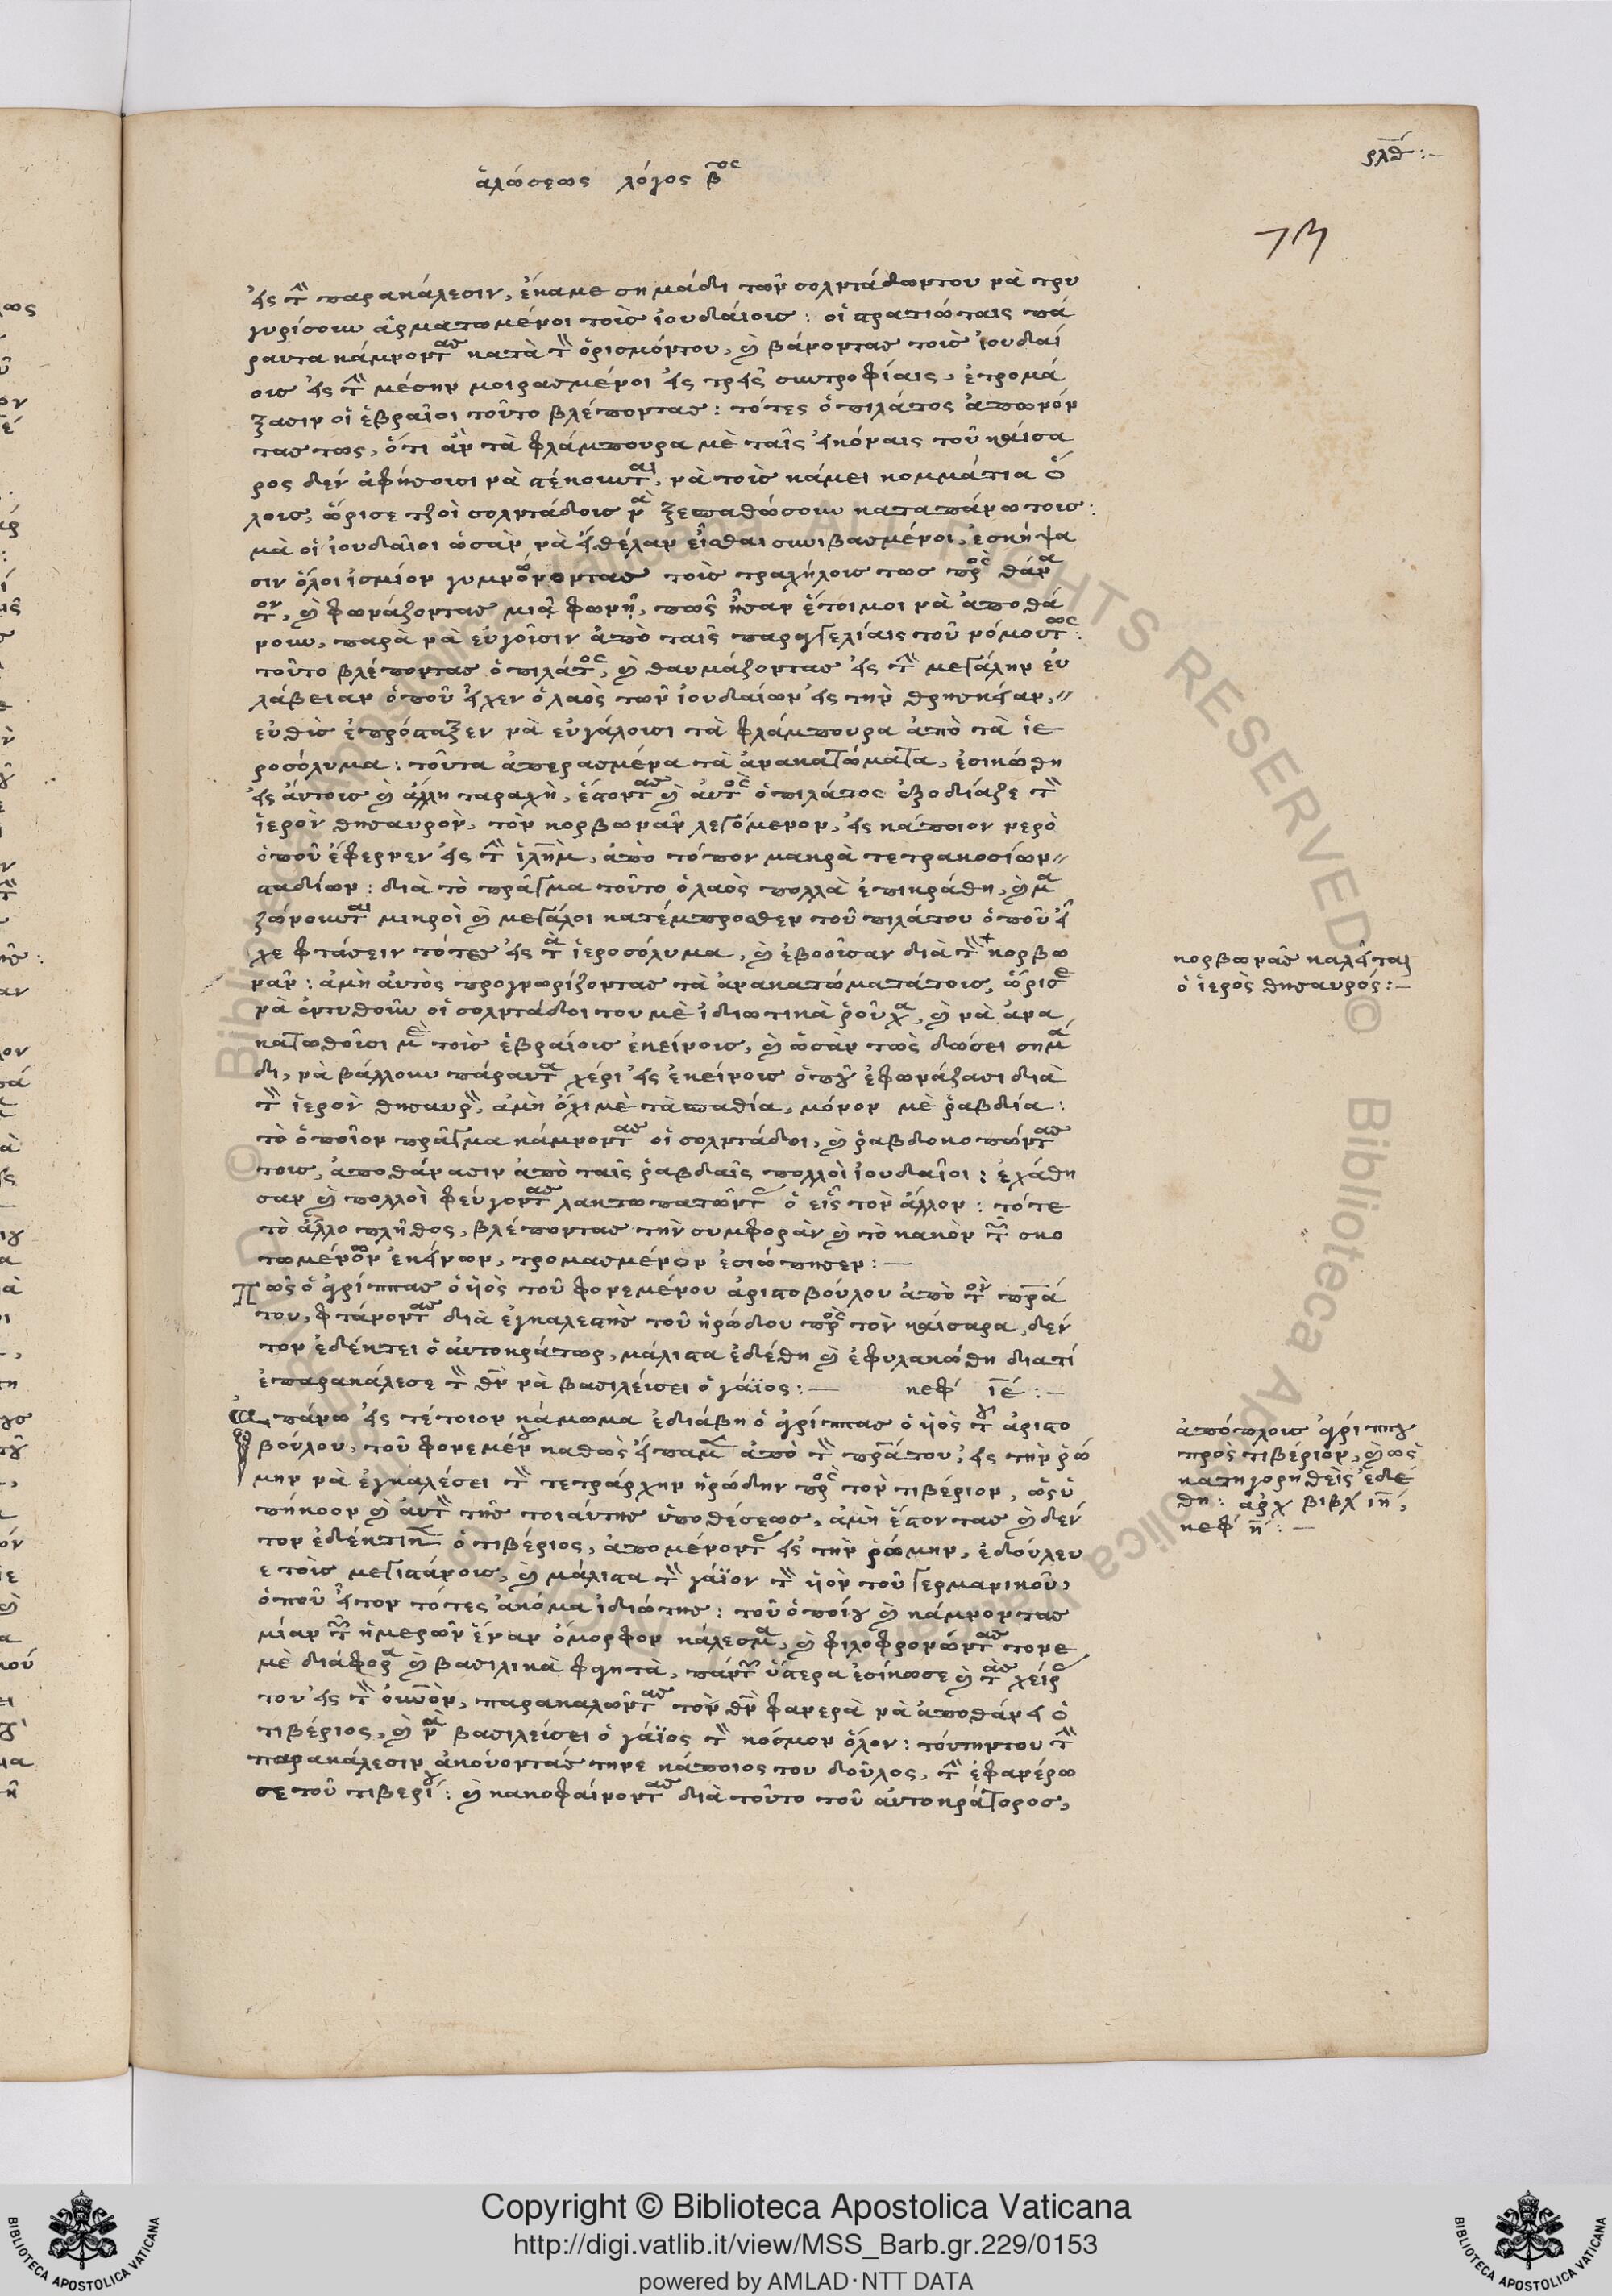 ρλδ:-
ἁλώσεως λόγος βος
73
εἰς τὴν παρακάλεσιν, ἔκαμε σημάδι τῶν σολντάδωντου νὰ τρυ
γυρίσουν ἁρματωμένοι τοὶς ἰουδαίοις: οἱ στρατιώταις πά
ραυτα κάμνοντας κατὰ τὸν ὁρισμόντου, καὶ βάνοντας τοὶς ἰουδαί
οις εἰς τὴν μέσην μοιρασμένοι εἰς τρεῖς συντροφίαις, ἐτρομά
ξασιν οἱ ἑβραῖοι τοῦτο βλέποντας: τότες ὁ πιλάτος ἀπωνόν
τας τως, ὅτι ἂν τὰ φλάμπουρα μὲ ταῖς εἰκόναις τοῦ καίσα
ρος δὲν ἀφήσοισι νὰ στέκουνται, νὰ τοὶς κάμει κομμάτια ὅ
λοις, ὥρισε τζοὶ σολντάδοις νὰ ξεσπαθώσουν καταπάνω τοις:
μὰ οἱ ἰουδαῖοι ὡσὰν νὰ εἴθέλαν εἶσθαι συνιβασμένοι, ἐσκύψα
σιν ὅλοι ἰσμίον γυμνόνοντας τοὶς τραχήλοις τως πρὸς θάνα
τον, καὶ φωνάζοντας μιᾷ φωνῇ, πῶς ἦσαν ἕτοιμοι νὰ ἀποθά
νουν, παρὰ νὰ εὐγοῖσιν ἀπὸ ταῖς παραγγελίαις τοῦ νόμουτως:
τοῦτο βλέποντας ὁ πιλάτος, καὶ θαυμάζοντας εἰς τὴν μεγάλην εὐ
λάβειαν ὁποῦ εἶχεν ὁ λαὸς τῶν ἰουδαίων εἰς τὴν θρησκείαν,
εὐθὶς ἐπρόσταξεν νὰ εὐγάλοισι τὰ φλάμπουρα ἀπὸ τὰ ἱε
ροσόλυμα: τοῦτα ἀπερασμένα τὰ ἀνακατώματα, ἐσικώθη
εἰς αὐτοις καὶ ἄλλη ταραχὴ, ἔστοντας καὶ αὐτὸς ὁ πιλάτος ἐξοδίαζε τὸν
ἱερὸν θησαυρὸν, τὸν κορβωνᾶν λεγόμενον, εἰς κάποιον νερὸ
ὁποῦ ἔφερνεν εἰς τὴν ἱλὴμ, ἀπὸ τόπον μακρὰ τετρακοσίων
σταδίων: διὰ τὸ πρᾶγμα τοῦτο ὁ λαὸς πολλὰ ἐπικράθη, καὶ μα
ζώνουνται μικροὶ καὶ μεγάλοι κατέμπροσθεν τοῦ πιλάτου ὁποῦ εἶ
χε φτάσειν τότες εἰς τὰ ἱεροσόλυμα, καὶ ἐβοοῖσαν διὰ τὸν κορβω
νᾶν: ἀμὴ αὐτὸς προγνωρίζοντας τὰ ἀνακατώματάτοις, ὥρισε
νὰ ἐντυθοῦν οἱ σολντάδοι του μὲ ἰδιωτικὰ ῥοῦχα, καὶ νὰ ἀνα
κατωθοῖσι μὲ τοὶς ἑβραίοις ἐκείνοις, καὶ ὡσὰν τὼς δώσει σημά
δι, νὰ βάλλουν πάραυτα χέρι εἰς ἐκείνοις ὁποῦ ἐφωνάζασι διὰ
τὸν ἱερὸν θησαυρὸν, ἀμὴ ὄχι μὲ τὰ σπαθία, μόνον μὲ ῥαβδία:
τὸ ὁποῖον πρᾶγμα κάμνοντας οἱ σολντάδοι, καὶ ῥαβδοκοπώντας
τοις, ἀποθάνασιν ἀπὸ ταῖς ῥαβδαῖς πολλοὶ ἰουδαῖοι: ἐχάθη
σαν καὶ πολλοὶ φεύγοντας λακτωπατῶντας ὁ εἷς τὸν ἄλλον: τότε
τὸ ἄλλο πλῆθος, βλέποντας τὴν συμφορὰν καὶ τὸ κακὸν τῶν σκο
τωμένων ἐκείνων, τρομασμένον ἐσιώπησεν:—
Πῶς ὁ ἀγρίππας ὁ υἱὸς τοῦ φονεμένου ἀριστοβούλου ἀπὸ τὸν πρᾶ
του, φτάνοντας διὰ ἐγκαλεστὴς τοῦ ἡρώδου πρὸς τὸν καίσαρα, δὲν
τον ἐδέκτει ὁ αὐτοκράτωρ, μάλιστα ἐδέθη καὶ ἐφυλακώθη διατὶ
ἐπαρακάλεσε τὸν θν νὰ βασιλεύσει ὁ γάϊος:— κεφ ιε:—
πάνω εἰς τέτοιον κάμωμα ἐδιάβη ὁ ἀγρίππας ὁ υἱὸς τοῦ ἀριστο
βούλου, τοῦ φονεμένου καθὼς εἴπαμεν ἀπὸ τὸν πρᾶτου, εἰς τὴν ῥώ
μην νὰ ἐγκαλέσει τὸν τετράρχην ἡρώδην πρὸς τὸν τιβέριον, ὡς ὑ
πήκοον καὶ αὐτὸν τῆς τοιαύτης ὑποθέσεως, ἀμὴ ἔστοντας καὶ δὲν
τον ἐδέκτην ὁ τιβέριος, ἀπομένοντας εἰς τὴν ῥώμην, ἐδούλευ
ε τοὶς μεγιστάνοις, καὶ μάλιστα τὸν γάϊον τὸν υἱὸν τοῦ γερμανικοῦ,
ὁποῦ εἶτον τότες ἀκόμα ἰδιώτης: τοῦ ὁποίου καὶ κάμνοντας
μίαν τῶν ἡμερῶν ἕναν ὄμορφον κάλεσμα, καὶ φιλοφρονώντας τονε
μὲ διάφορα καὶ βασιλικὰ φαγητὰ, πάντων ὕστερα ἐσίκωσε καὶ τὰς χεῖρας
του εἰς τὸν οὐνὸν, παρακαλώντας τὸν θν φανερὰ νὰ ἀποθάνει ὁ
τιβέριος, καὶ νὰ βασιλεύσει ὁ γάϊος τὸν κόσμον ὅλον: τούτηντου τὴν
παρακάλεσιν ἀκούοντάς τηνε κάποιος του δοῦλος, τὴν ἐφανέρω
σε τοῦ τιβερίου: καὶ κακοφαίνοντας διὰ τοῦτο τοῦ αὐτοκράτορος,
κορβωνᾶς καλεῖται
ὁ ἱερὸς θησαυρός:—
ἀπόπλοις ἀγρίππου
πρὸς τιβέριον, καὶ ὡς
κατηγορηθεὶς ἐδέ
θη: ἀρχ βιβλ ιη,
κεφ η:—
Copyright © Biblioteca Apostolica Vaticana
http://digi.vatlib.it/view/MSS_Barb.gr.229/0153
powered by AMLAD·NTT DATA